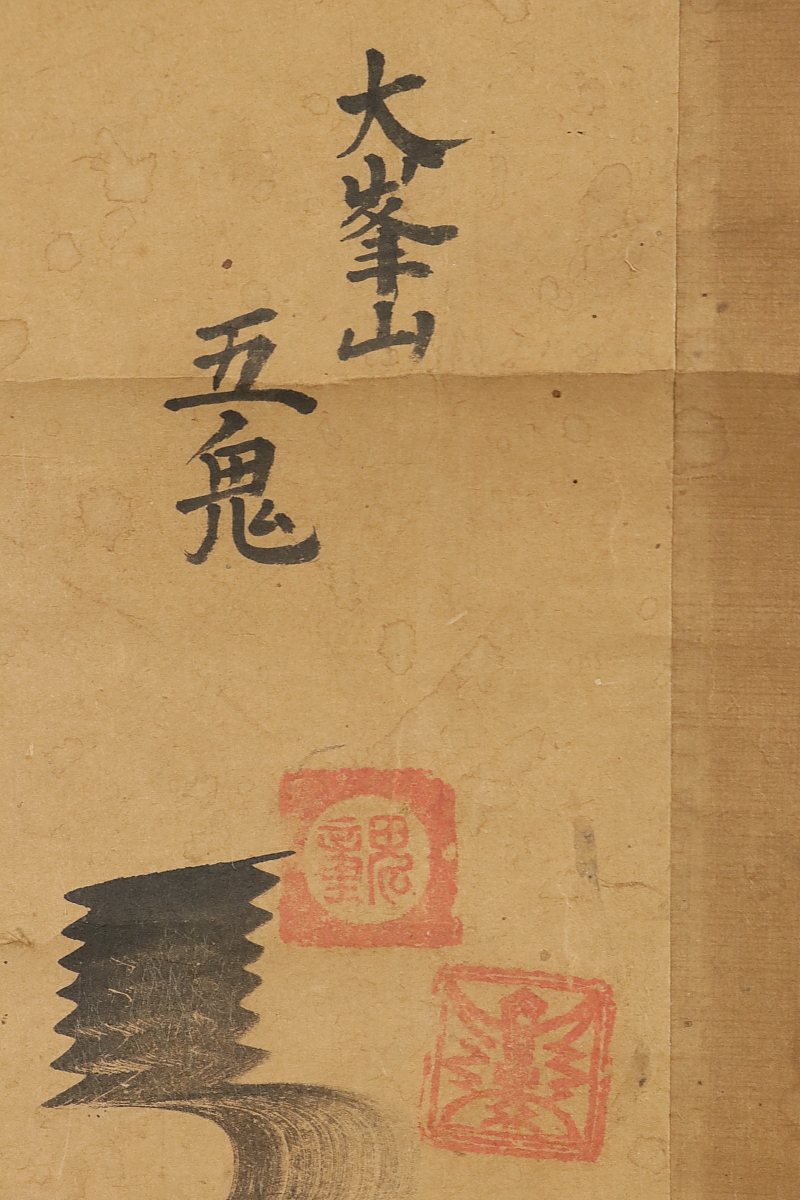 大峯山
五鬼